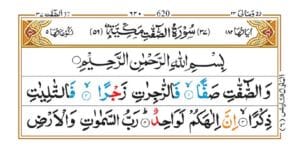 620
سُوْرَةُ الصّٰٓفّٰتِ مَكِّيَّةٌ
بِسْمِ اللّٰهِ الرَّحْمٰنِ الرَّحِيْمِ
وَالصّٰٓفّٰتِ صَفًّا ۙ فَالزّٰجِرٰتِ زَجْرًا ۙ فَالتّٰلِيٰتِ
ذِكْرًا ۙ اِنَّ اِلٰهَكُمْ لَوَاحِدٌ ؕ رَبُّ السَّمٰوٰتِ وَالْاَرْضِ